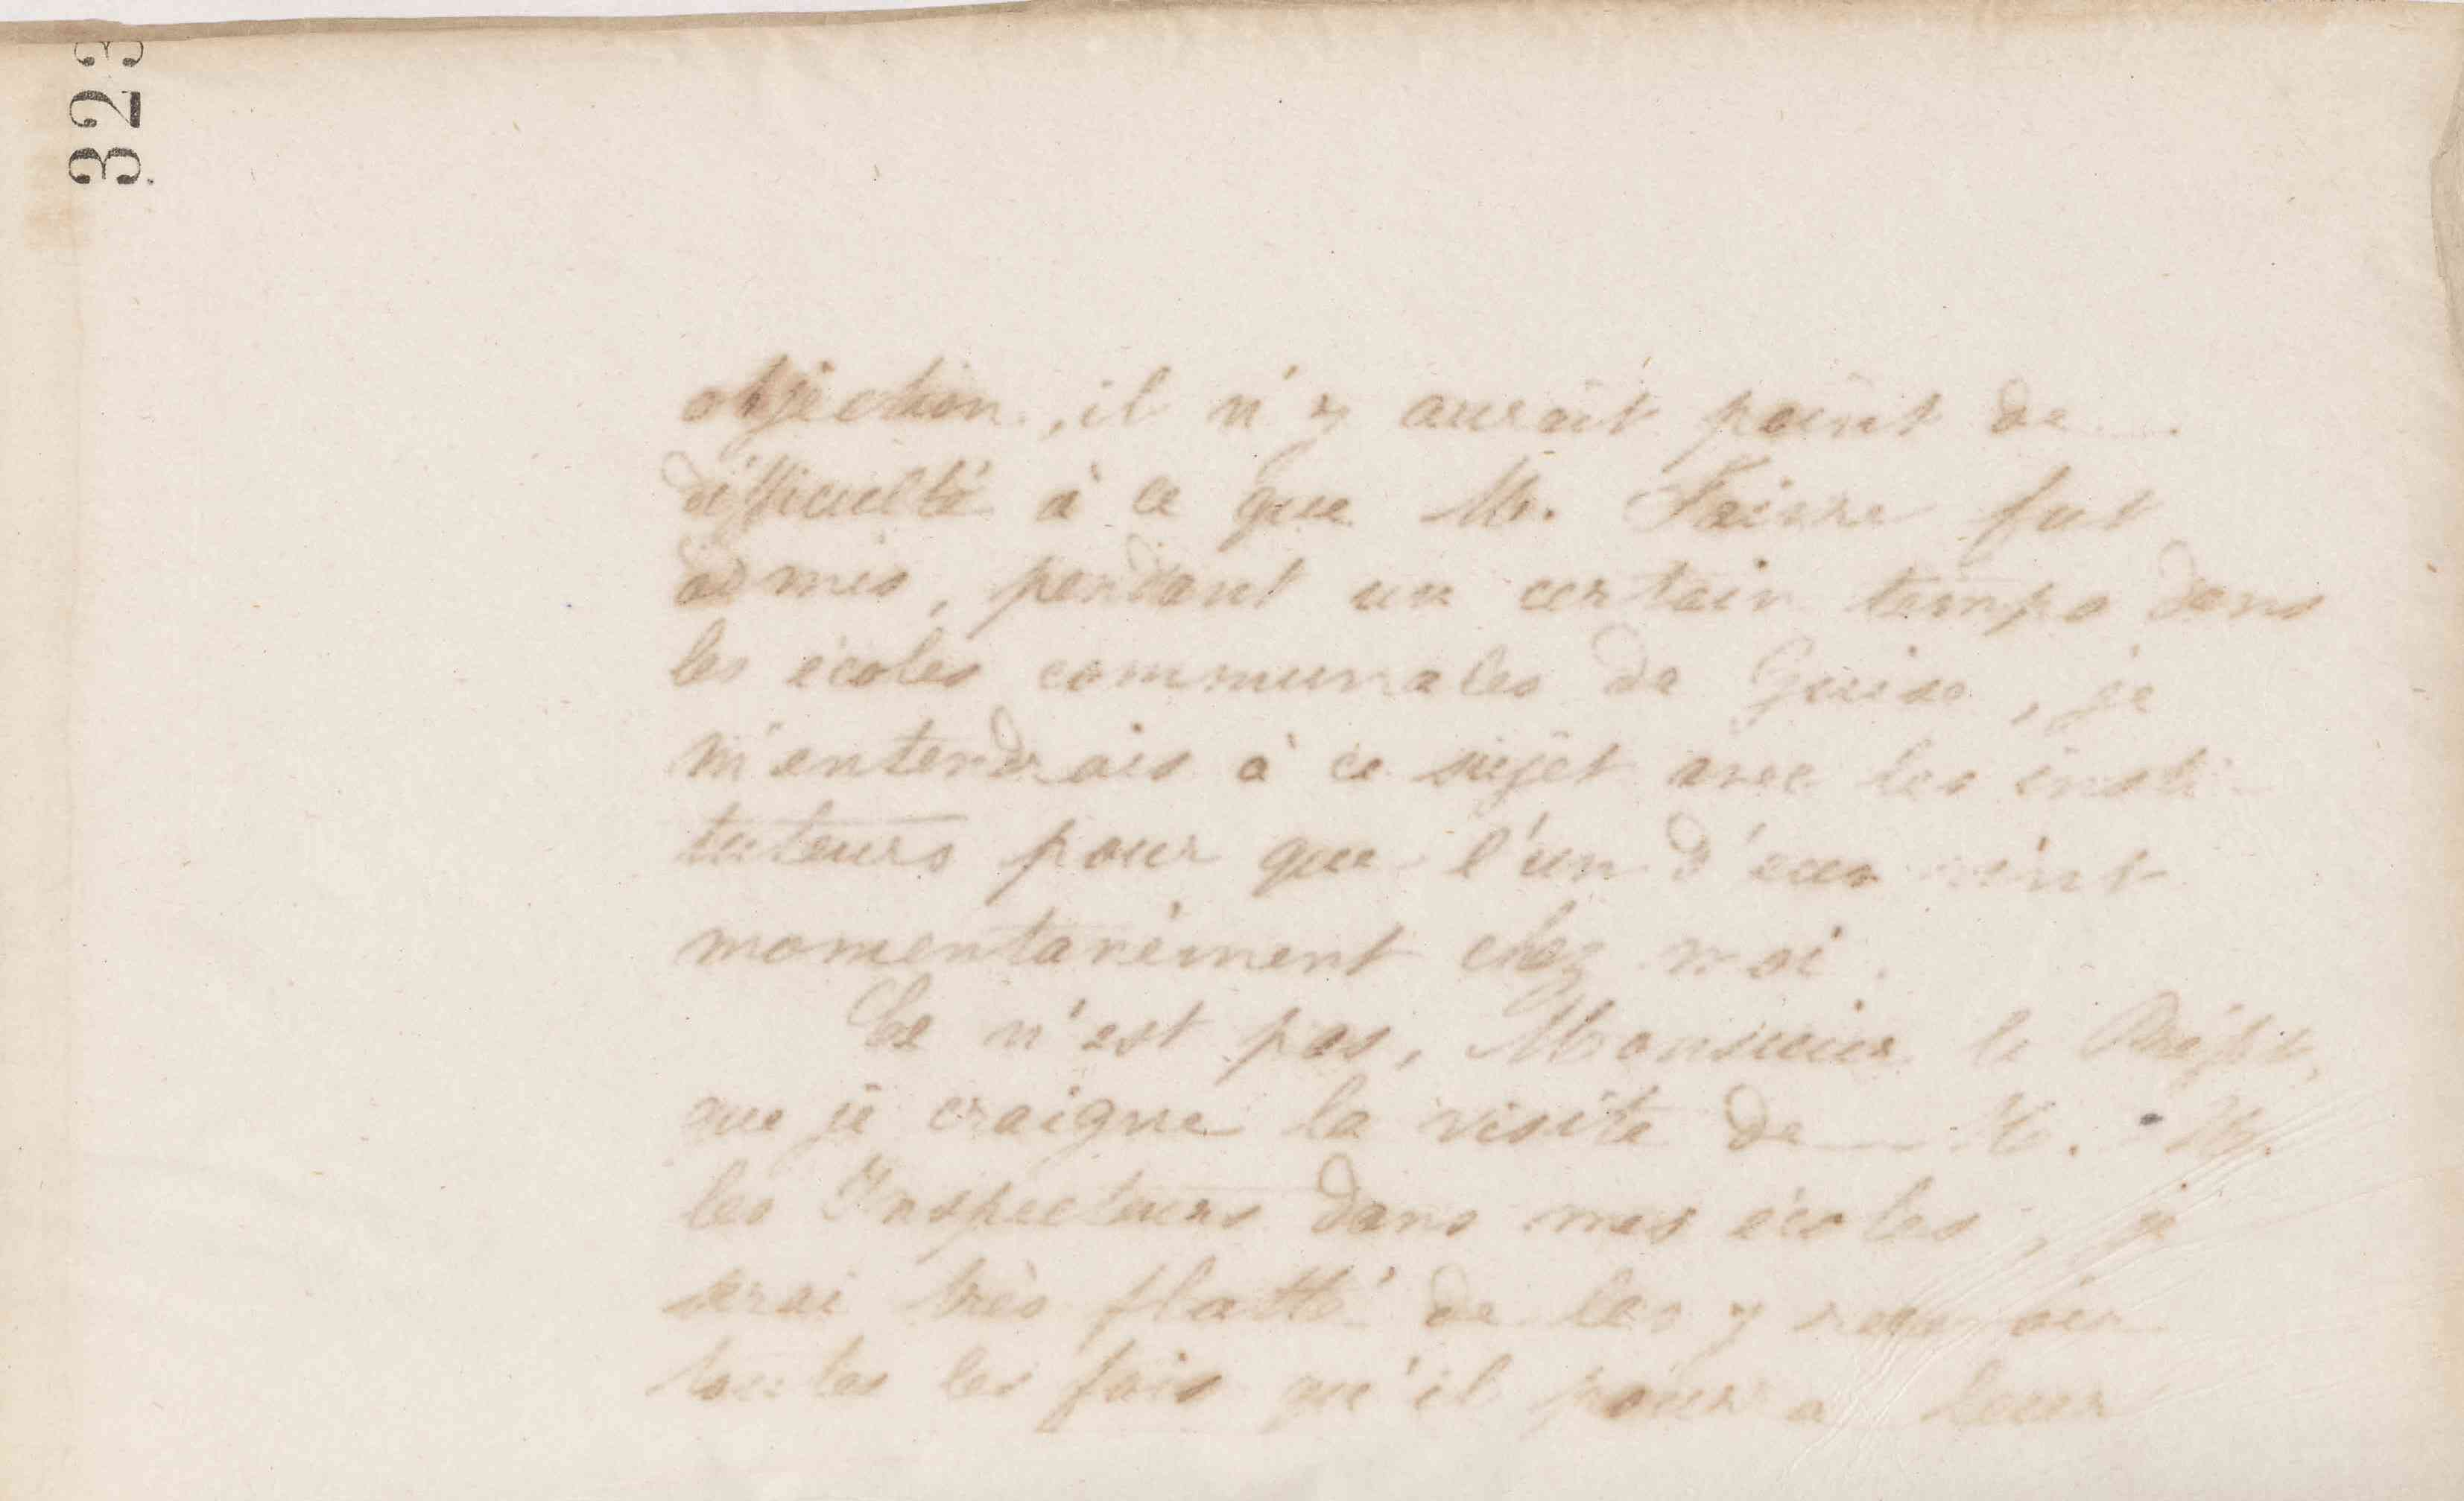 323
objection, il n'y aurait point de
difficulté à ce que M. Faivre fut
admis, pendant un certain temps dans
les écoles communales de Guise, je
m'entendrais à ce sujet avec les insti-
tuteurs pour que l'un d'eux vint
momentanément chez moi.
Ce n'est pas, Monsieur le Préfet,
que je craigne la visite de M. M.
les Inspecteurs dans mes écoles, je
serai très flatté de les y recevoir
toutes les fois qu'il pourra leur